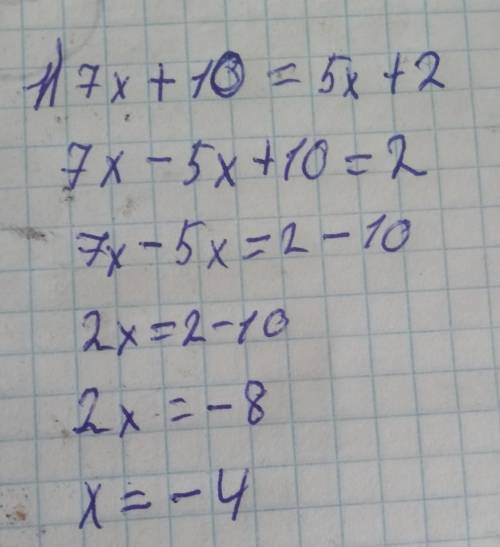 1) 7x + 10 = 5x + 2
7x - 5x + 10 = 2
7x - 5x = 2 - 10
2x = 2 - 10
2x = -8
x = -4